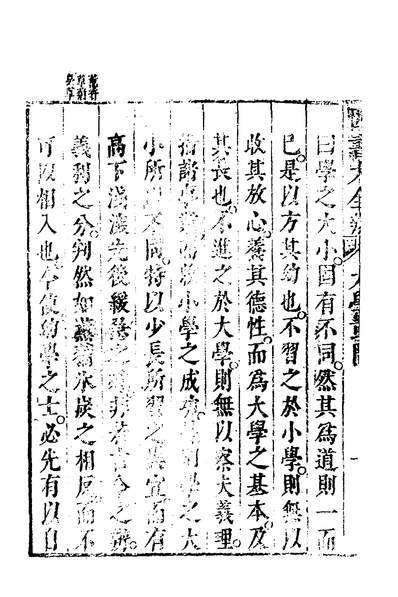 曰學之大小固有不同然其爲道則一而
已是以方其幼也不習之於小學則無以
收其放心養其德性而爲大學之基本及
其長也不進之於大學則無以察夫義理
措諸事業而收小學之成功是則學之大
小所以不同特以少長所習之異宜而有
高下淺深先後緩急之殊非若古今之辨
義利之分判然如薰蕕冰炭之相反而不
可以相入也今使幼學之士必先有以自